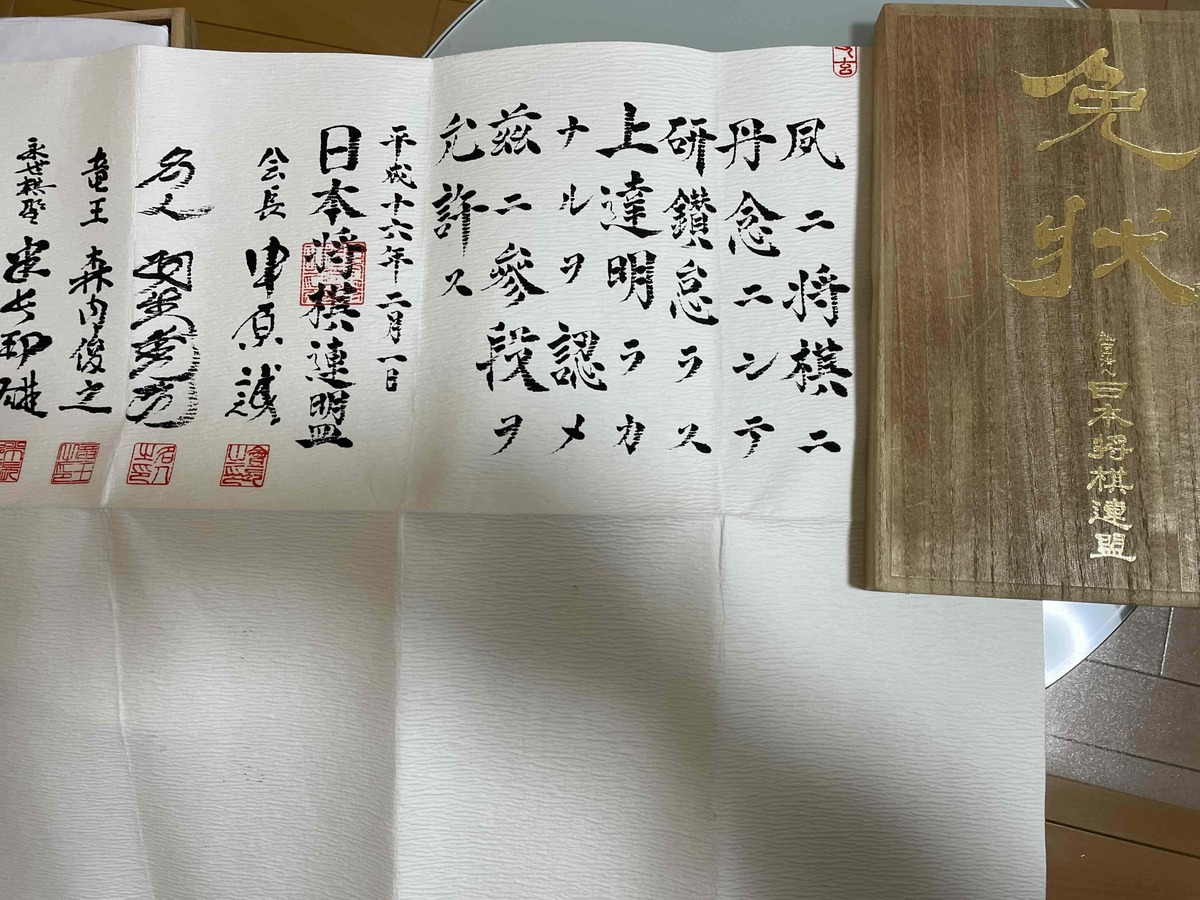 免状
社団法人 日本将棋連盟
夙ニ将棋ニ
丹念ニシテ
研鑽怠ラス
上達明ラカ
ナルヲ認メ
茲ニ參段ヲ
允許ス
平成十六年二月一日
日本将棋連盟
会長 中原誠
名人 羽生善治
竜王 森内俊之
永世棋聖 米長邦雄